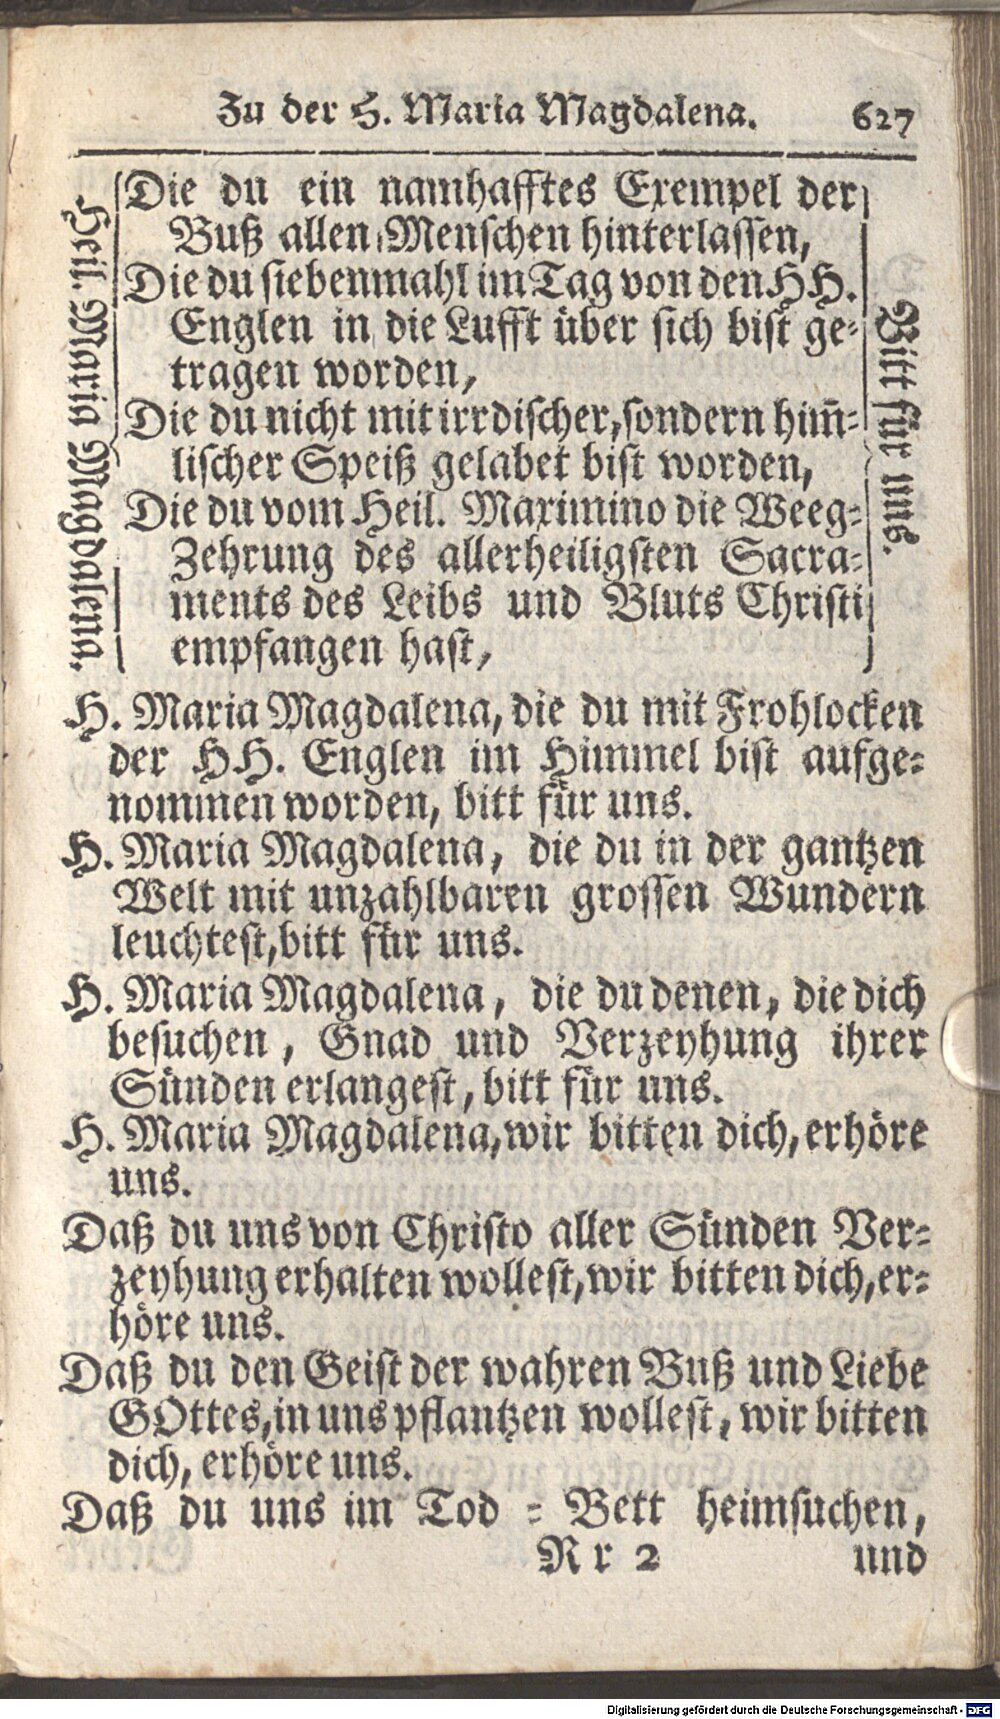 Zu der H. Maria Magdalena. 627
Heil. Maria Magdalena.
Die du ein namhafftes Exempel der
Buß allen Menschen hinterlassen,
Die du siebenmahl im Tag von den HH.
Englen in die Lufft über sich bist ge-
tragen worden,
Die du nicht mit irrdischer, sondern him̄-
lischer Speiß gelabet bist worden,
Die du vom Heil. Maximino die Weeg-
Zehrung des allerheiligsten Sacra-
ments des Leibs und Bluts Christi
empfangen hast,
Bitt für uns.
H. Maria Magdalena, die du mit Frohlocken
der HH. Englen im Himmel bist aufge-
nommen worden, bitt für uns.
H. Maria Magdalena, die du in der gantzen
Welt mit unzahlbaren grossen Wundern
leuchtest, bitt für uns.
H. Maria Magdalena, die du denen, die dich
besuchen, Gnad und Verzeyhung ihrer
Sünden erlangest, bitt für uns.
H. Maria Magdalena, wir bitten dich, erhöre
uns.
Daß du uns von Christo aller Sünden Ver-
zeyhung erhalten wollest, wir bitten dich, er-
höre uns.
Daß du den Geist der wahren Buß und Liebe
GOttes, in uns pflantzen wollest, wir bitten
dich, erhöre uns.
Daß du uns im Tod = Bett heimsuchen,
R r 2 und
Digitalisierung gefördert durch die Deutsche Forschungsgemeinschaft - DFG